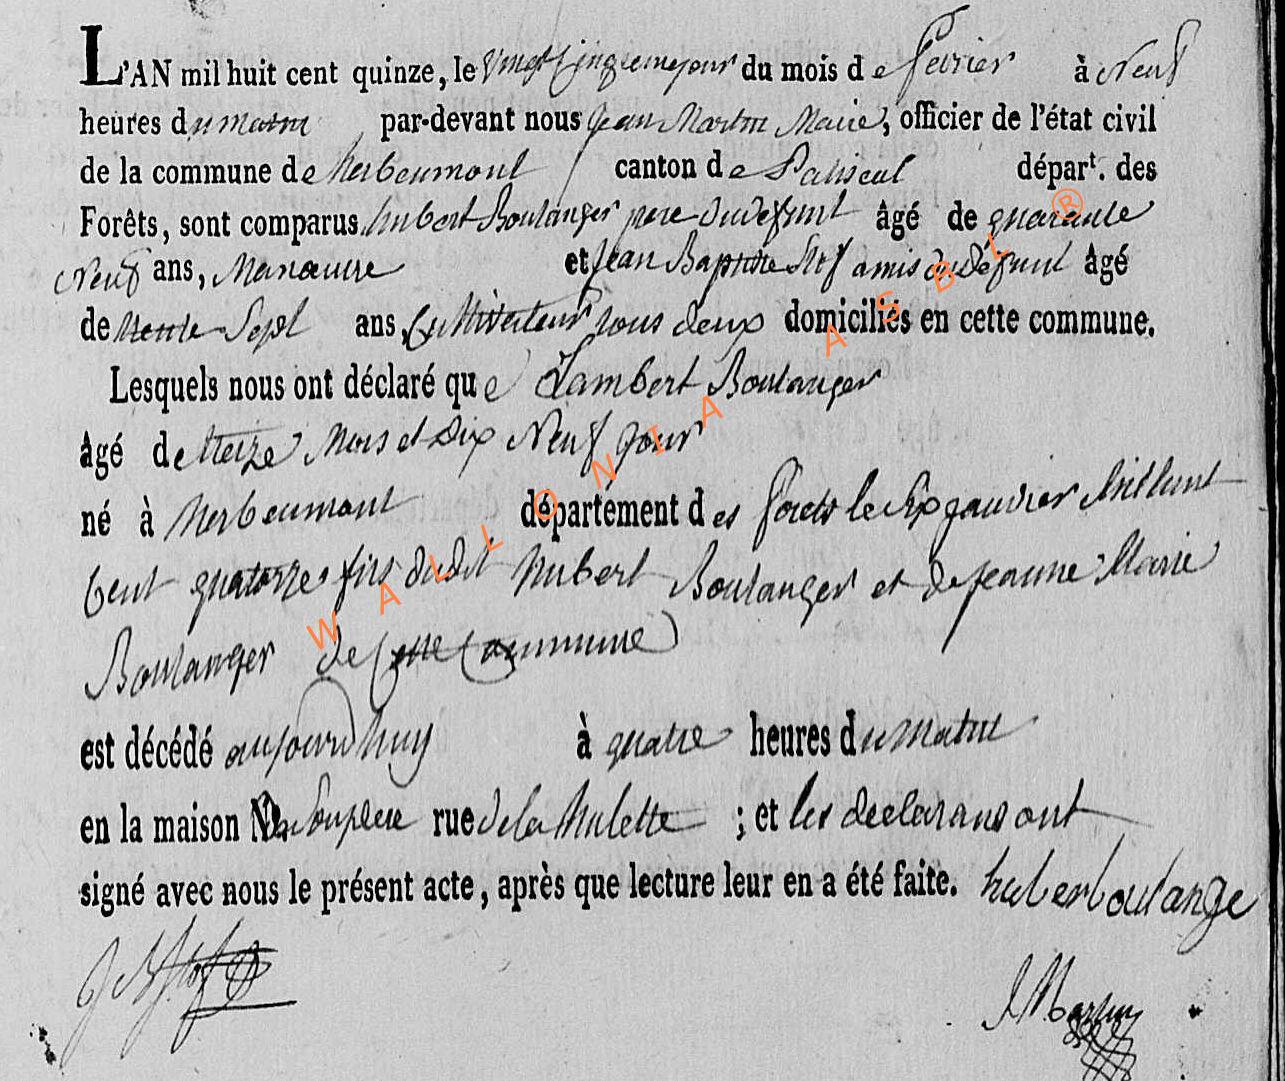 L'AN mil huit cent quinze, le vingt Cinqiemejour du mois de fevrier à Neuf
heures du matin par-devant nous jean Martin Maire, officier de l'état civil
de la commune de herbeumont canton de Paliseul départ. des
Forêts, sont comparus hubert Boulanger pere du defunt âgé de quarante
Neuf ans, Manœuvre et jean Baptiste amis du defunt âgé
de trente Sept ans, Cultivateur tous deux domiciliés en cette commune.
Lesquels nous ont déclaré que Lambert Boulanger
âgé de treize Mois et Dix Neuf jour
né à herbeumont département des forets le Six janvier Mil huit
Cent quatorze fils dudit hubert Boulanger et de jeanne Marie
Boulanger de Cette Commune
est décédé aujourd huy à quatre heures du matin
en la maison De Son pere rue de la hulette ; et les declarans ont
signé avec nous le présent acte, après que lecture leur en a été faite. huberboulange
J Martin
WALLONIA ASBL ®